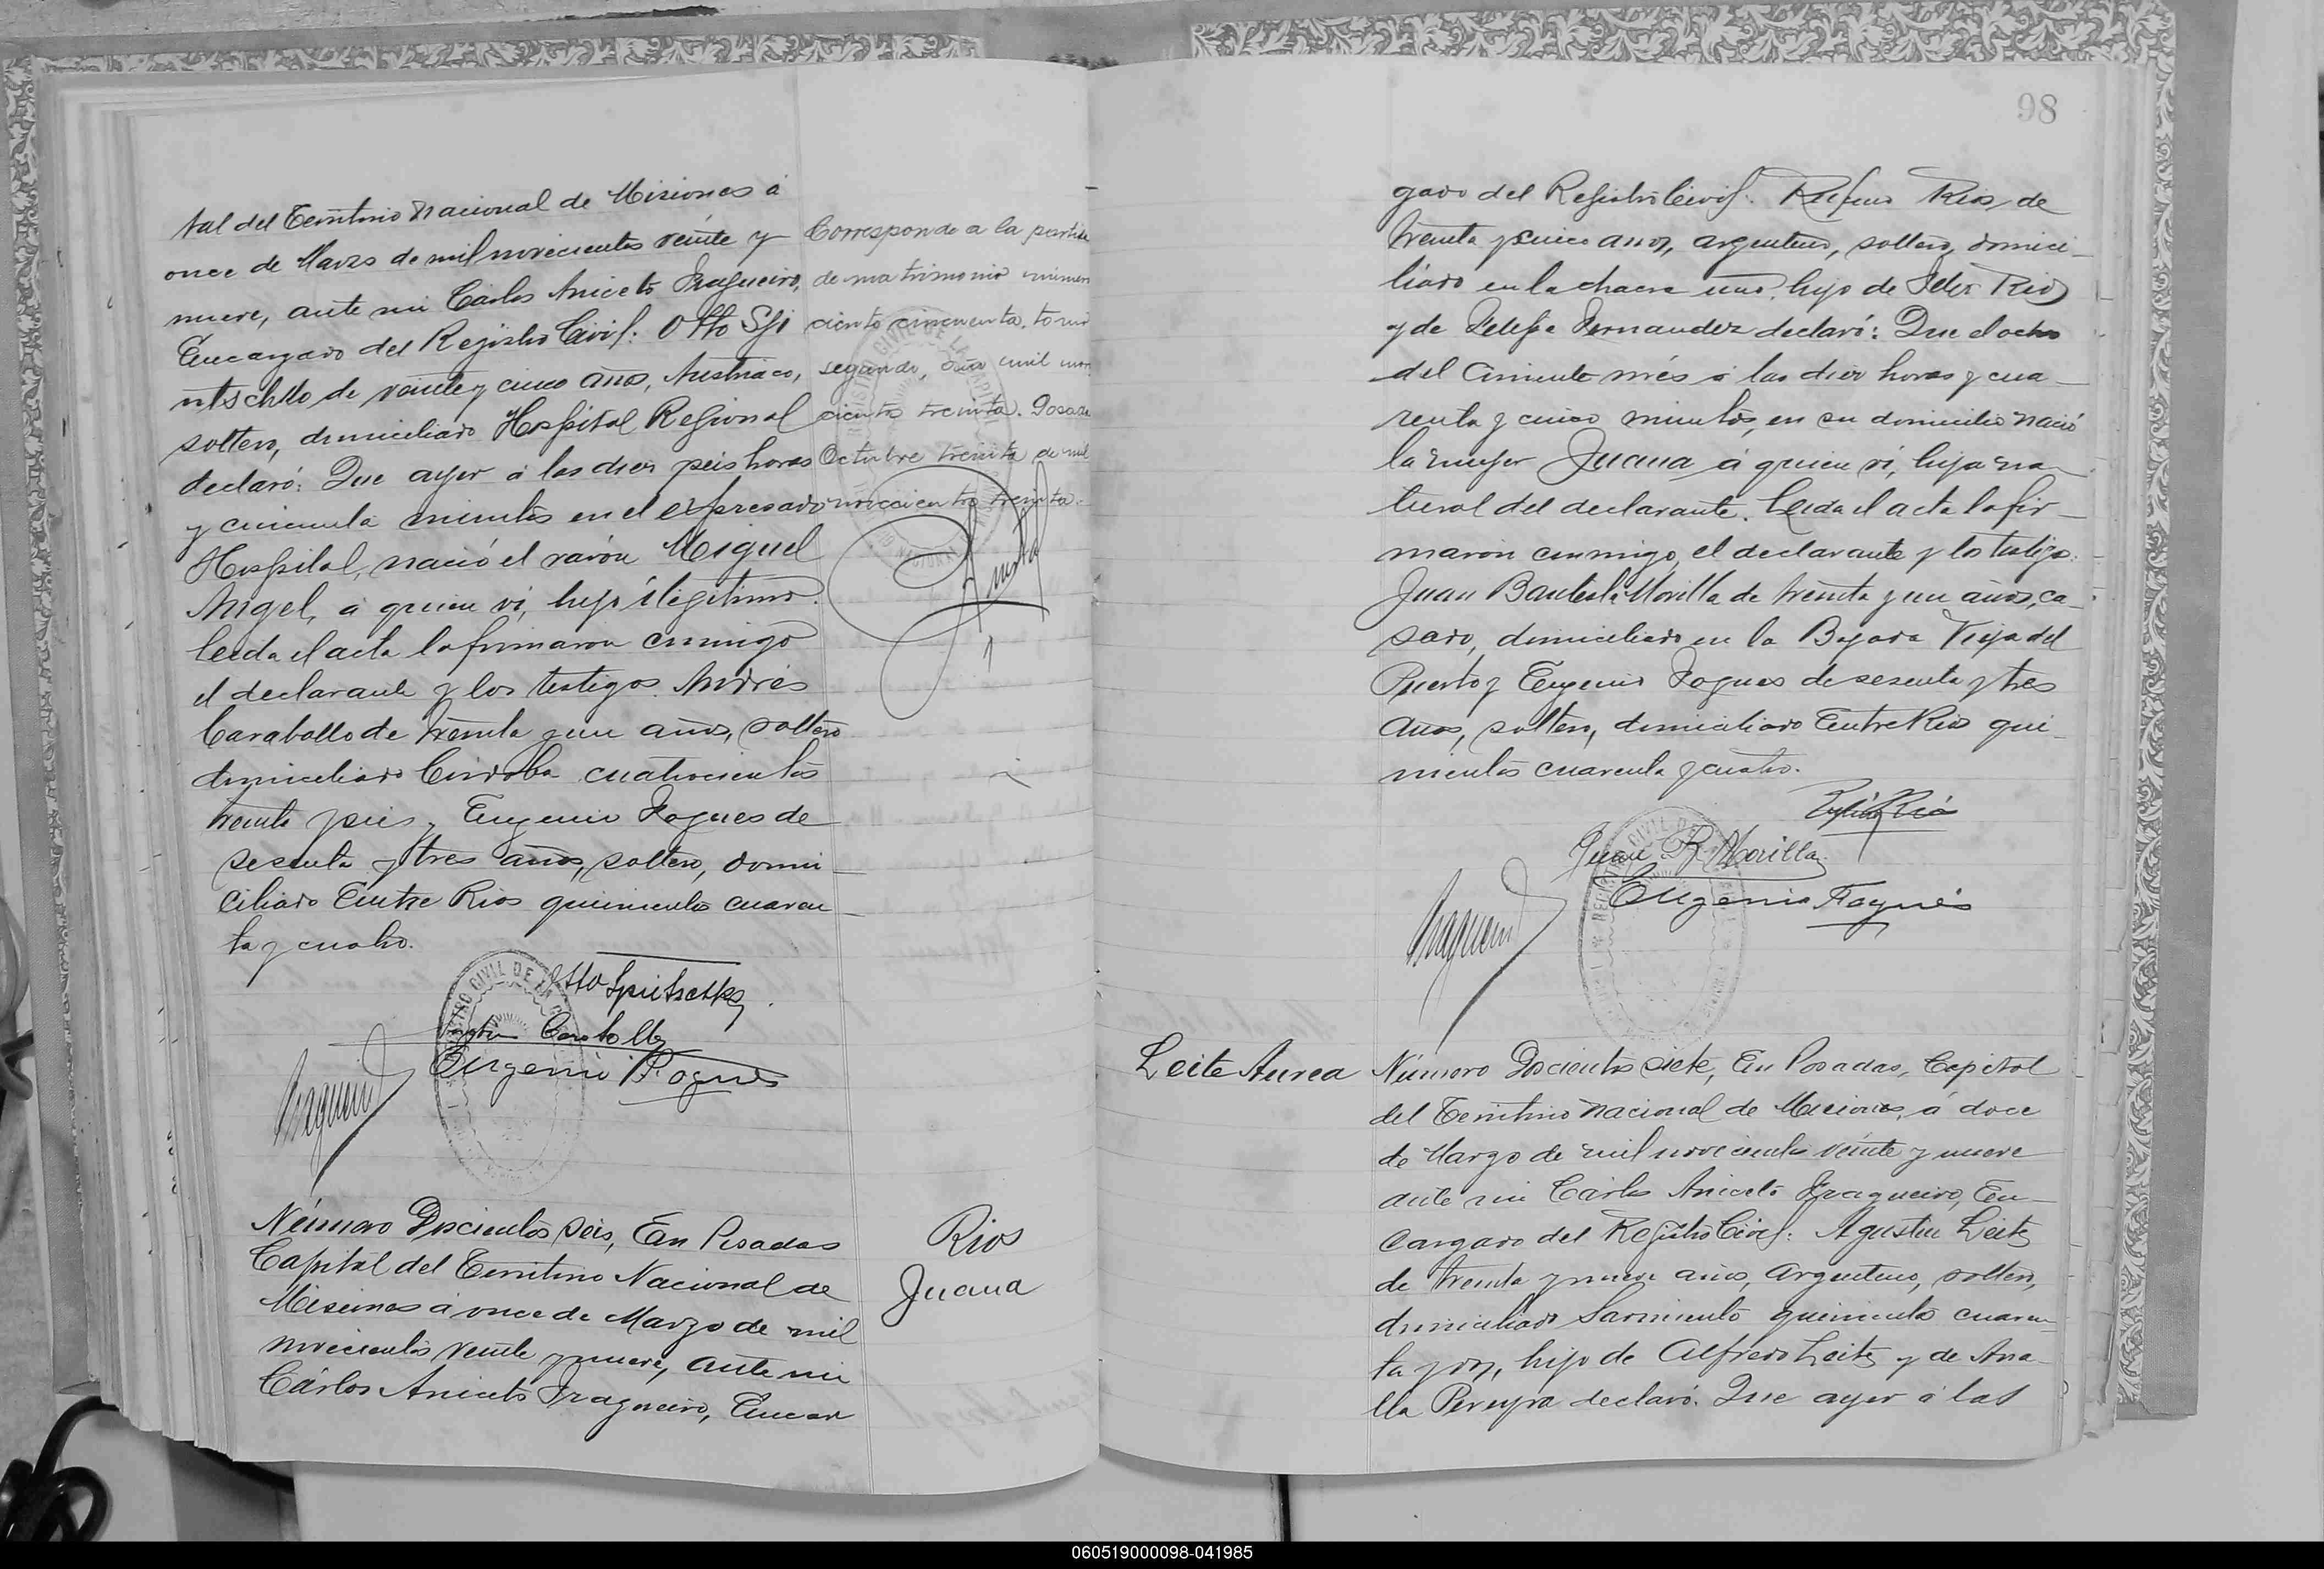 tal del Territorio Nacional de Misiones á
once de Marzo de mil novecientos veinte y
nueve, ante mi Cárlos Aniceto Fragueiro,
Encargado del Registro Civil: Otto Spi
ntschko de veinte y cinco años, Austriaco,
soltero, domiciliado Hospital Regional
declaró: Que ayer á las diez y seis horas
y cincuenta minutos en el expresado
Hospital, nació el varón Miguel
Angel, á quien ví, hijo ilegítimo.
Leida el acta la firmaron conmigo
el declarante y los testigos Andrés
Caraballo de treinta y un años, soltero
domiciliado Córdoba cuatrocientos
treinta y seis y Eugenio Fogues de
sesenta y tres años, soltero, domi-
ciliado Entre Rios quinientos cuaren-
ta y cuatro.
Corresponde a la partida
de matrimonio número
ciento cincuenta, tomo
segundo, año mil nove
cientos treinta. Posadas
Octubre treinta de mil
novecientos treinta.
Otto
Caraballo
Eugenio Fogues
REGISTRO CIVIL DE LA
Número Doscientos seis, En Posadas
Capital del Territorio Nacional de
Misiones á once de Marzo de mil
novecientos veinte y nueve, ante mi
Cárlos Aniceto Fragueiro, Encar
Rios
Juana
98
gado del Registro Civil: Rufino Rios de
treinta y cinco años, argentino, soltero, domici-
liado en la chacra uno, hijo de Rios
y de Fernandez declaró: Que el ocho
del corriente més á las diez horas y cua-
renta y cinco minutos, en su domicilio nació
la mujer Juana á quien ví, hija na-
tural del declarante. Leida el acta la fir-
maron conmigo, el declarante y los testigos
Juan Bautista Morilla de treinta y un años, ca-
sado, domiciliado en la Bajada Vieja del
Puerto y Eugenio Fogues de sesenta y tres
años, soltero, domiciliado Entre Rios qui-
nientos cuarenta y cuatro.
Rios
Juan B. Morilla
Eugenio Fogues
Leite Aurea
Número Doscientos siete, En Posadas, Capital
del Territorio Nacional de Misiones, á doce
de Marzo de mil novecientos veinte y nueve
ante mi Cárlos Aniceto Fragueiro, En-
cargado del Registro Civil: Agustin Leite
de treinta y nueve años, Argentino, soltero,
domiciliado Sarmiento quinientos cuaren-
ta y dos, hijo de Alfredo Leite y de Ana-
lla Pereyra declaró: Que ayer á las
060519000098-041985